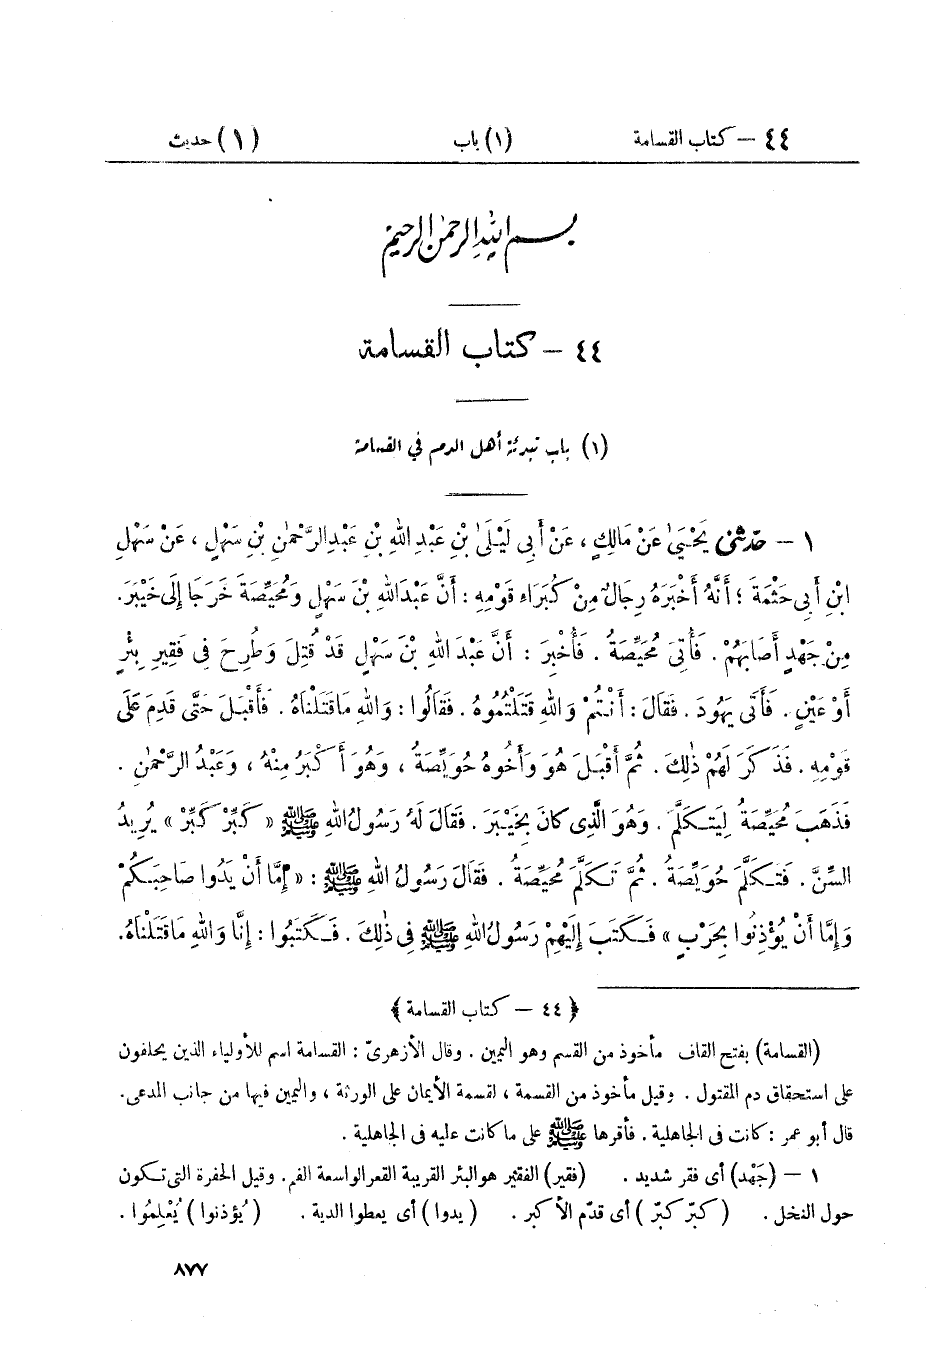 ٤٤ – كتاب القسامة (١) باب (١) حديث
بسم الله الرحمن الرحيم
٤٤ – كتاب القسامة
(١) باب تبدئة أهل الدم في القسامة
١ – حدّثنى يَحْيَىٰ عَنْ مَالِكٍ ، عَنْ أَبِى لَيْلَىٰ بْنِ عَبْدِ اللهِ بْنِ عَبْدِ الرَّحْمٰنِ بْنِ سَهْلٍ ، عَنْ سَهْلِ
ابْنِ أَبِى حَثْمَةَ ؛ أَنَّهُ أَخْبَرَهُ رِجَالٌ مِنْ كُبَرَاء قَوْمِهِ : أَنَّ عَبْدَ اللهِ بْنَ سَهْلٍ وَمُحَيِّصَةَ خَرَجَا إِلَى خَيْبَرَ.
مِنْ جَهْدٍ أَصَابَهُمْ . فَأُتِىَ مُحَيِّصَةُ . فَأُخْبِرَ : أَنَّ عَبْدَ اللهِ بْنَ سَهْلٍ قَدْ قُتِلَ وَطُرِحَ فِى فَقِيرِ بِئْرٍ
أَوْ عَيْنٍ . فَأَتَى يَهُودَ . فَقَالَ : أَنْتُمْ وَاللهِ قَتَلْتُمُوهُ . فَقَالُوا : وَاللهِ مَا قَتَلْنَاهُ . فَأَقْبَلَ حَتَّى قَدِمَ عَلَى
قَوْمِهِ . فَذَكَرَ لَهُمْ ذٰلِكَ . ثُمَّ أَقْبَلَ هُوَ وَأَخُوهُ حُوَيِّصَةُ ، وَهُوَ أَكْبَرُ مِنْهُ ، وَعَبْدُ الرَّحْمٰنِ .
فَذَهَبَ مُحَيِّصَةُ لِيَتَكَلَّمَ . وَهُوَ الَّذِى كَانَ بِخَيْبَرَ . فَقَالَ لَهُ رَسُولُ اللهِ ﷺ « كَبِّرْ كَبِّرْ » يُرِيدُ
السِّنَّ . فَتَكَلَّمَ حُوَيِّصَةُ . ثُمَّ تَكَلَّمَ مُحَيِّصَةُ . فَقَالَ رَسُولُ اللهِ ﷺ : « إِمَّا أَنْ يَدُوا صَاحِبَكُمْ
وَإِمَّا أَنْ يُؤْذِنُوا بِحَرْبٍ » فَكَتَبَ إِلَيْهِمْ رَسُولُ اللهِ ﷺ فِى ذٰلِكَ . فَكَتَبُوا : إِنَّا وَاللهِ مَا قَتَلْنَاهُ.
﴿ ٤٤ – كتاب القسامة ﴾
(القسامة) بفتح القاف مأخوذ من القسم وهو اليمين . وقال الأزهرىّ : القسامة اسم للأولياء الذين يحلفون
على استحقاق دم المقتول . وقيل مأخوذ من القسمة ، لقسمة الأيمان على الورثة ، واليمين فيها من جانب المدعى.
قال أبو عمر : كانت فى الجاهلية . فأقرها ﷺ على ما كانت عليه فى الجاهلية .
١ – (جَهْد) أى فقر شديد . (فقير) الفقير هو البئر القريبة القعر الواسعة الفم . وقيل الحفرة التى تكون
حول النخل . (كبّر كبّر) أى قدّم الأكبر . (يدوا) أى يعطوا الدية . (يُؤذنوا) يُعْلِمُوا .
٨٧٧